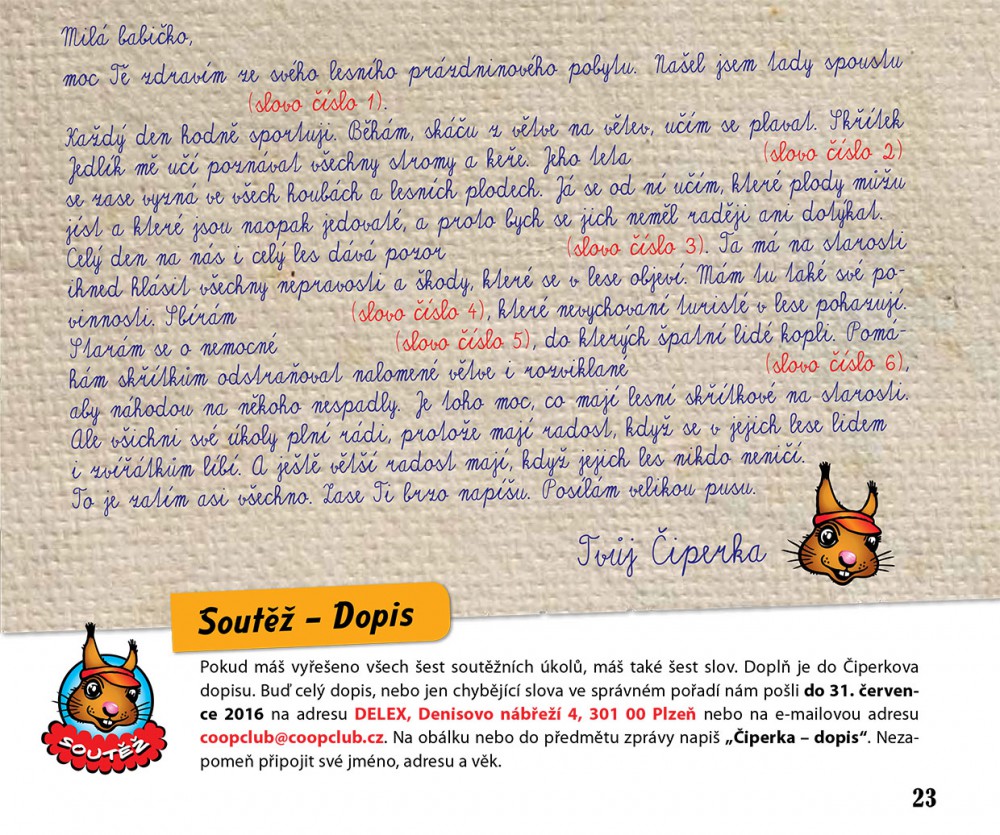 Milá babičko,
moc Tě zdravím ze svého lesního prázdninového pobytu. Našel jsem tady spoustu
(slovo číslo 1).
Každý den hodně sportuji. Běhám, skáču z větve na větev, učím se plavat. Skřítek
Jedlík mě učí poznávat všechny stromy a keře. Jeho teta (slovo číslo 2)
se zase vyzná ve všech houbách a lesních plodech. Já se od ní učím, které plody můžu
jíst a které jsou naopak jedovaté, a proto bych se jich neměl raději ani dotýkat.
Celý den na nás i celý les dává pozor (slovo číslo 3). Ta má na starosti
ihned hlásit všechny nepravosti a škody, které se v lese objeví. Mám tu také své po-
vinnosti. Sbírám (slovo číslo 4), které nevychovaní turisté v lese pohazují.
Starám se o nemocné (slovo číslo 5), do kterých špatní lidé kopli. Pomá-
hám skřítkům odstraňovat nalomené větve i rozviklané (slovo číslo 6),
aby náhodou na někoho nespadly. Je toho moc, co mají lesní skřítkové na starosti.
Ale všichni své úkoly plní rádi, protože mají radost, když se v jejich lese lidem
i zvířátkům líbí. A ještě větší radost mají, když jejich les nikdo neničí.
To je zatím asi všechno. Zase Ti brzo napíšu. Posílám velikou pusu.
Tvůj Čiperka
Soutěž – Dopis
Pokud máš vyřešeno všech šest soutěžních úkolů, máš také šest slov. Doplň je do Čiperkova
dopisu. Buď celý dopis, nebo jen chybějící slova ve správném pořadí nám pošli do 31. červen-
ce 2016 na adresu DELEX, Denisovo nábřeží 4, 301 00 Plzeň nebo na e-mailovou adresu
coopclub@coopclub.cz. Na obálku nebo do předmětu zprávy napiš „Čiperka – dopis“. Neza-
pomeň připojit své jméno, adresu a věk.
SOUTĚŽ
23